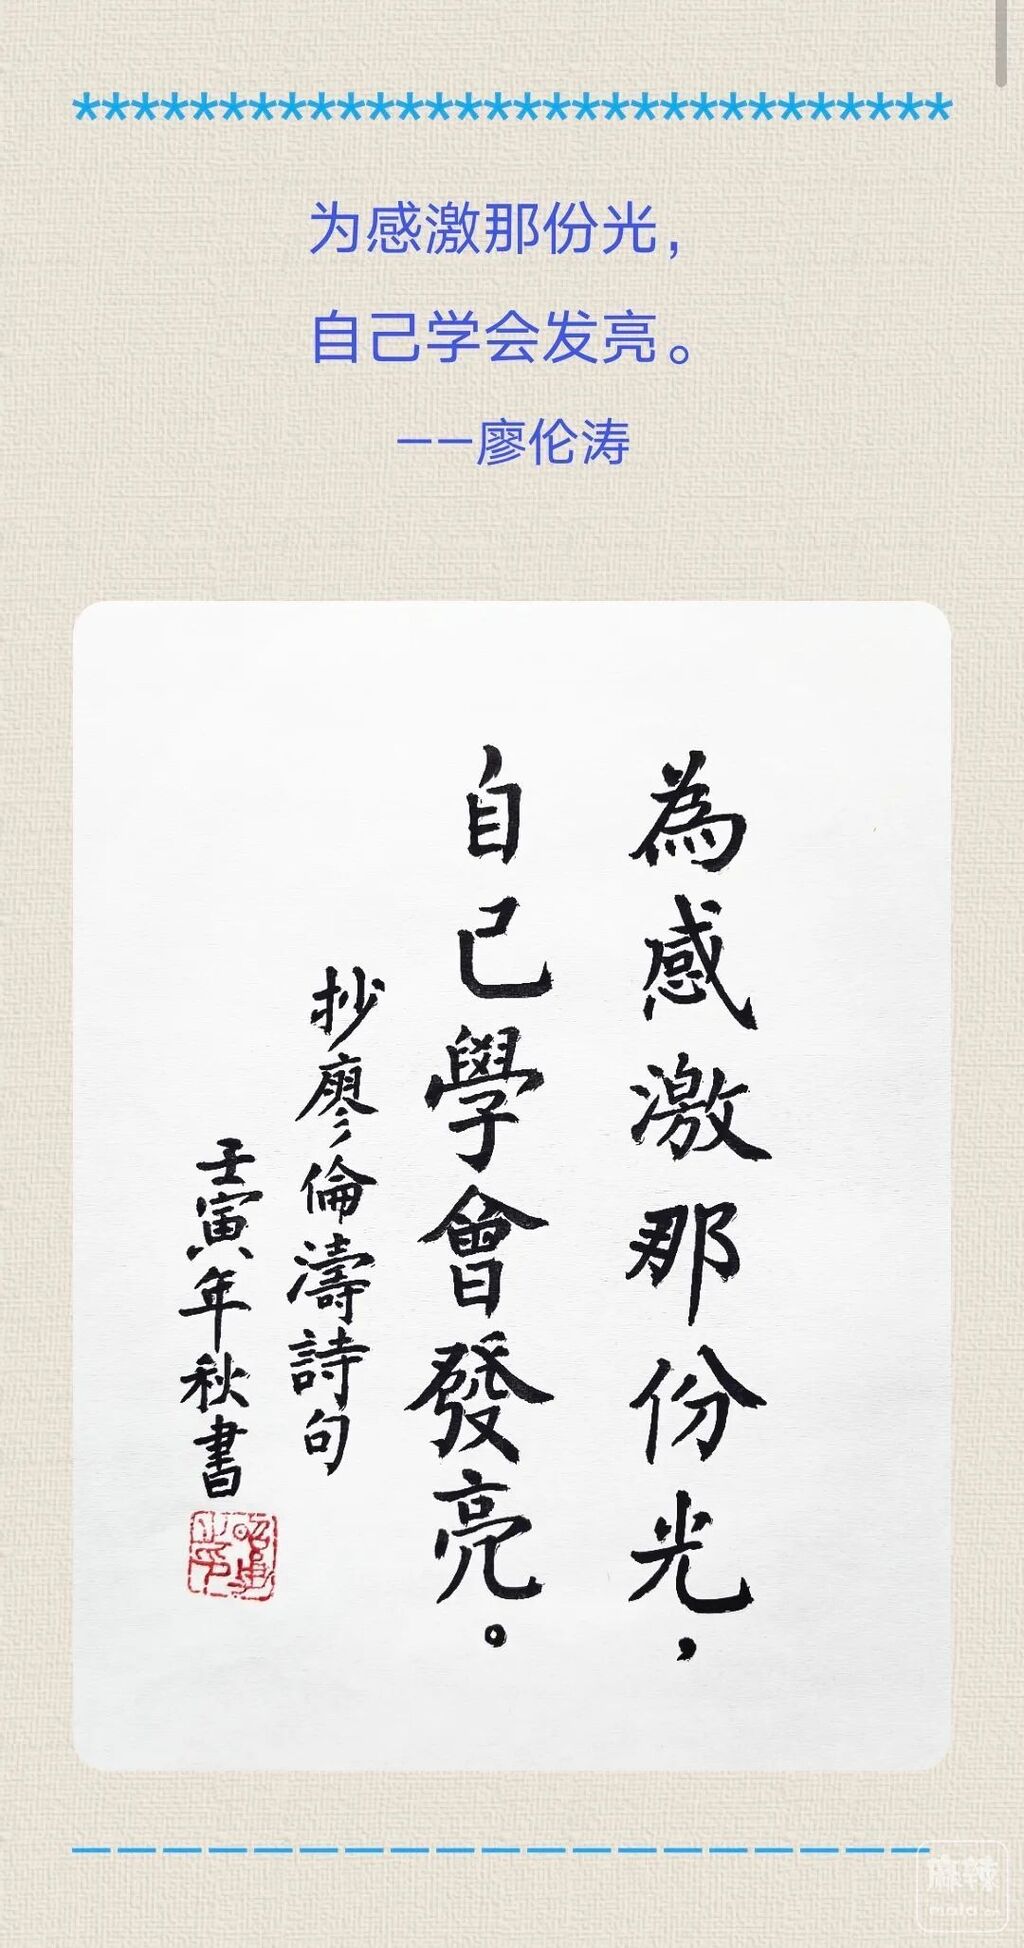 ******************************
为感激那份光，
自己学会发亮。
——廖伦涛
為感激那份光，
自己學會發亮。
抄廖倫濤詩句
壬寅年秋書
麻辣
mala.cn